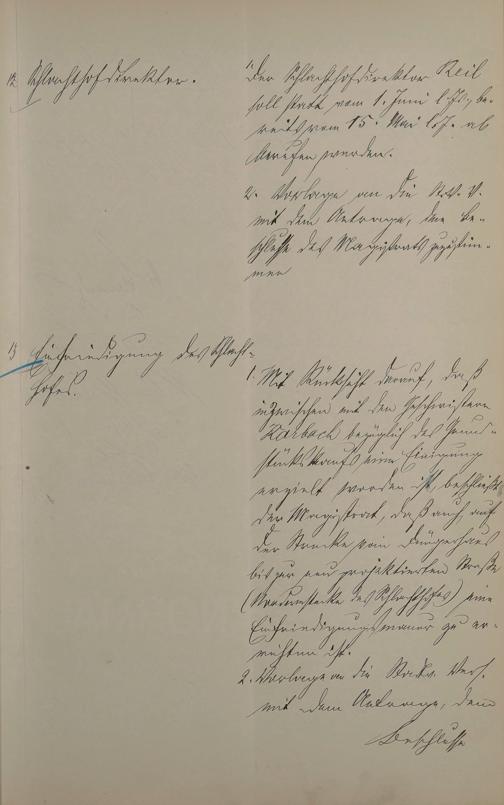 12. Schlachthofdirektor.
1. Der Schlachthofdirektor Keil
soll statt vom 1. Juni l. Js., be-
reits vom 15. Mai l. J. ab
berufen werden.
2. Vorlage an die St. V. V.
mit dem Antrage, dem Be-
schlusse des Magistrats zuzustim-
men
13 Einfriedigung des Schlacht-
hofes.
1. Mit Rücksicht darauf, daß
inzwischen mit den Geschwistern
Karbach bezüglich des Grund-
stückskaufs eine Einigung
erzielt worden ist, beschließt
der Magistrat, daß auch auf
der Strecke vom Düngerhaus
bis zur neu projektierten Straße
(Nordwestecke des Schlachthofes) eine
Einfriedigungsmauer zu er-
richten ist.
2. Vorlage an die Stadtv. Vers.
mit dem Antrage, dem
Beschlusse